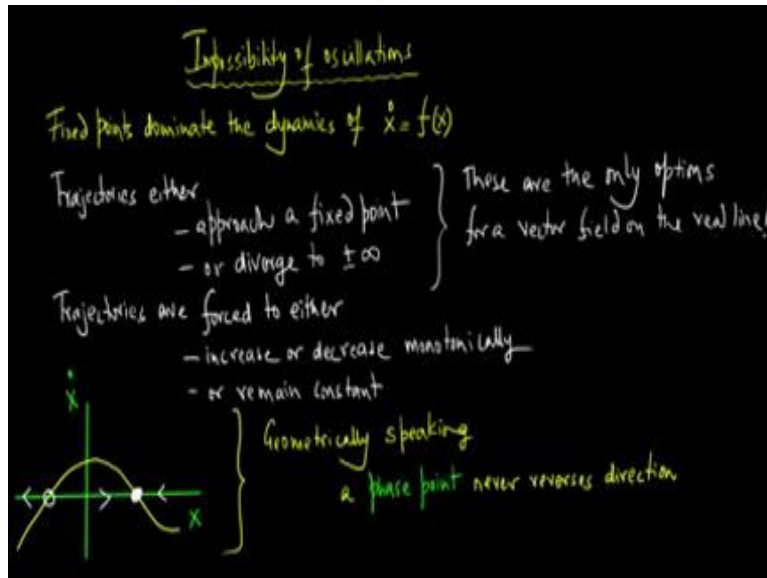 Impossibility of oscillations
Fixed points dominate the dynamics of ẋ = f(x)
Trajectories either
- approach a fixed point
- or diverge to ± ∞
These are the only options
for a vector field on the real line!
Trajectories are forced to either
- increase or decrease monotonically
- or remain constant
ẋ
x
Geometrically speaking
a phase point never reverses direction